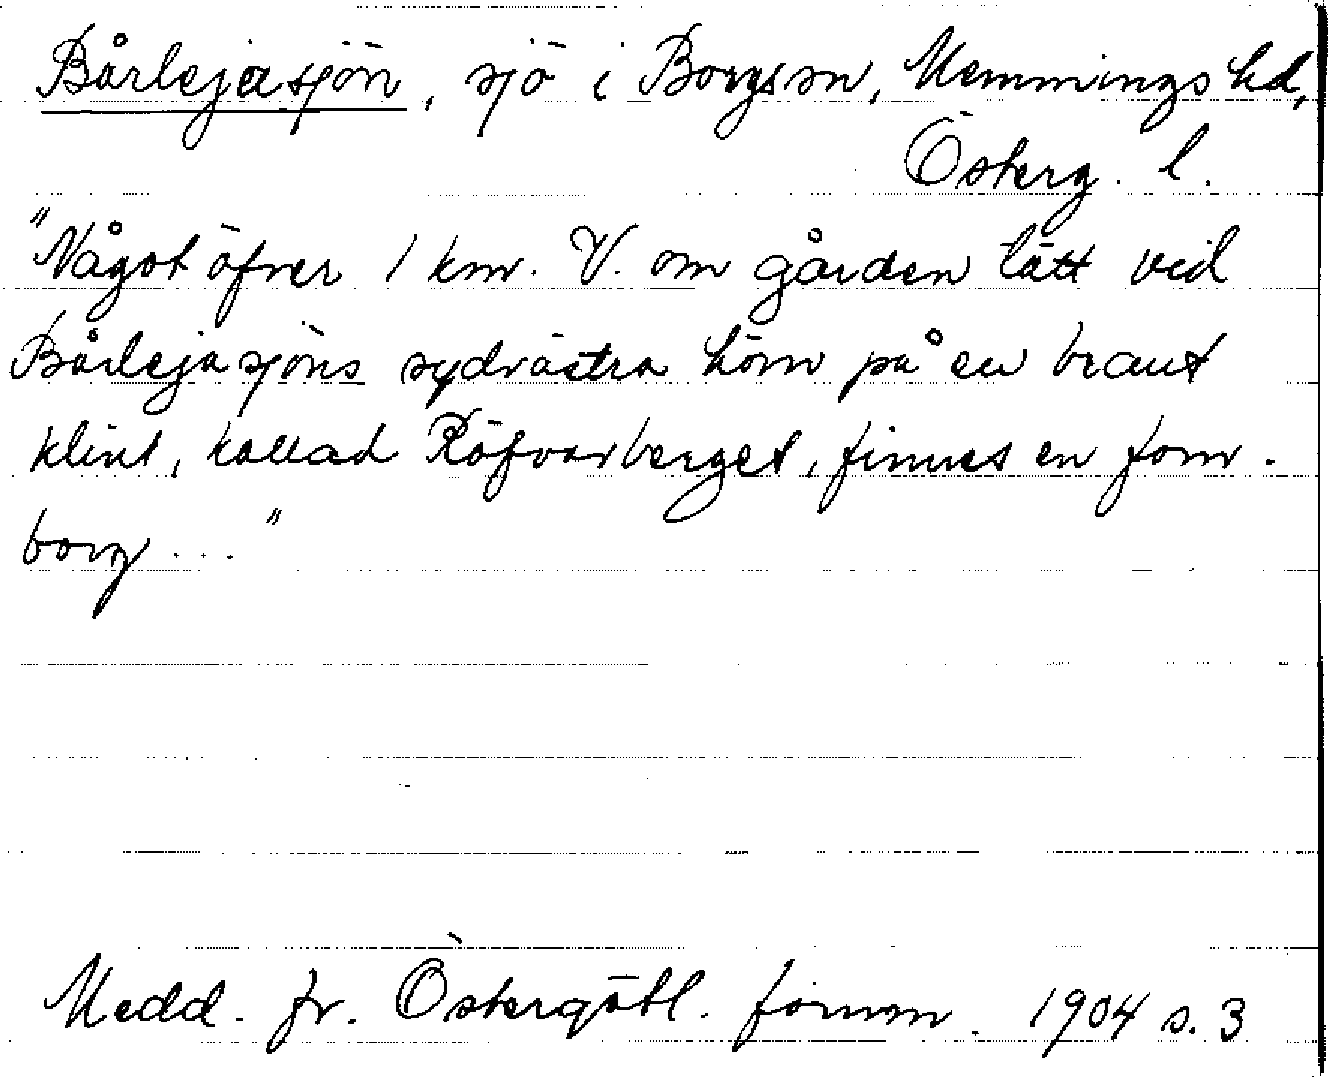 Bårlejasjön, sjö i Borgs sn, Memmings hd,
Österg. l.
"Något öfver 1 km. V. om gården tätt vid
Bårlejasjöns sydvästra hörn på en brant
klint, kallad Röfvarberget, finnes en forn-
borg ..."
Medd. fr. Östergötl. fornm. 1904 s. 3